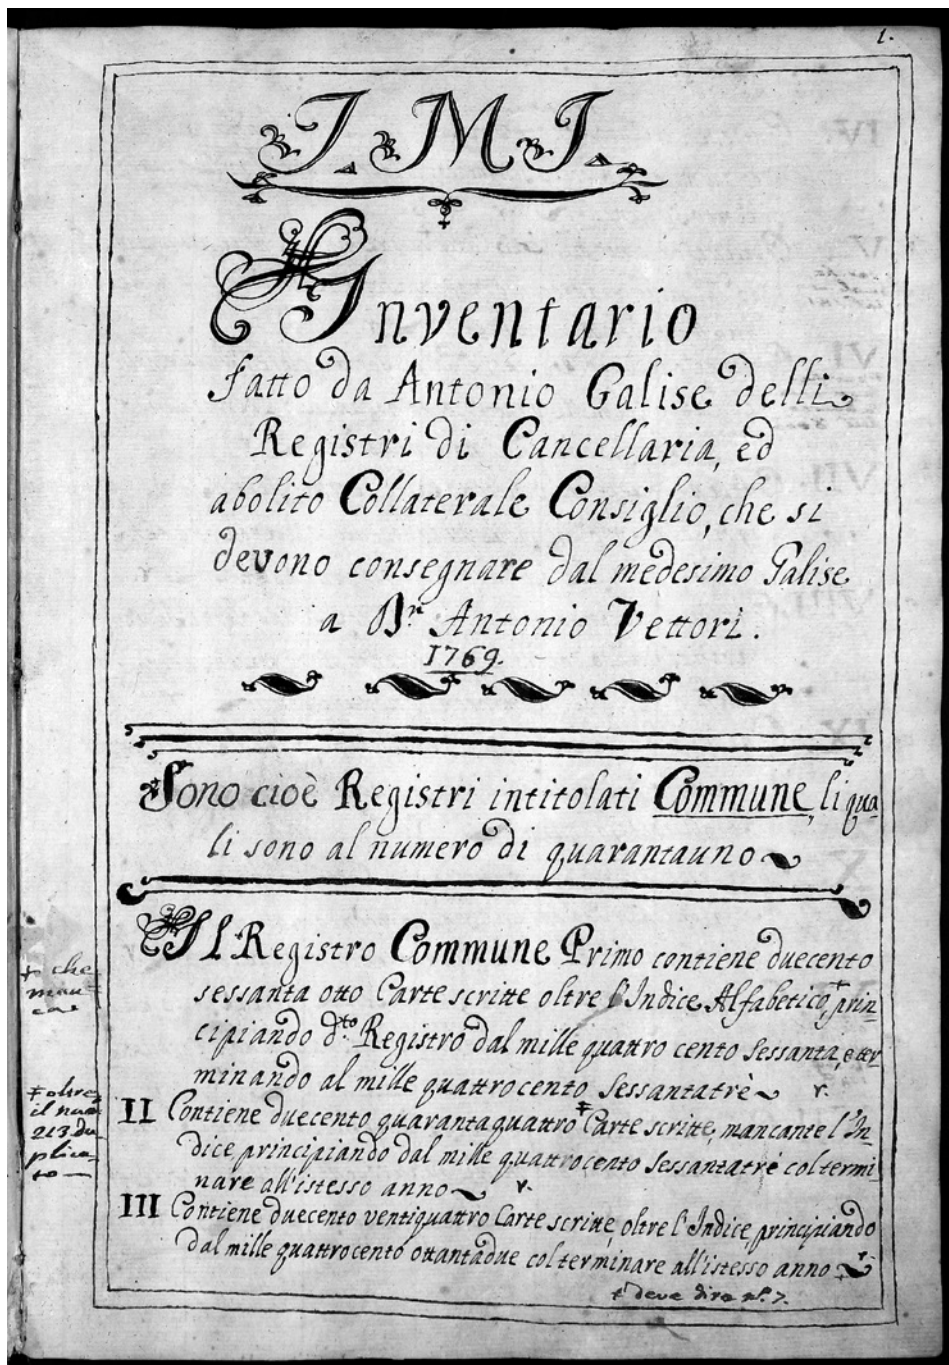 1.
J. M. J.
Inventario
fatto da Antonio Galise delli
Registri di Cancellaria, ed
abolito Collaterale Consiglio, che si
devono consegnare dal medesimo Galise
a Dn. Antonio Vettori.
1769.
Sono cioè Registri intitolati Commune, li qua
li sono al numero di quarantauno
Il Registro Commune Primo contiene duecento
sessanta otto Carte scritte oltre l'Indice Alfabetico,+ prin=
cipiando d.to Registro dal mille quattro cento sessanta, e ter
minando al mille quattrocento sessantatrè r.
+ che
manca
II Contiene duecento quarantaquattro ‡ Carte scritte, mancante l'In=
dice, principiando dal mille quattrocento sessantatrè col termi
nare all'istesso anno r.
‡ oltre
il nu
213 du
plica=
to
III Contiene duecento ventiquattro Carte scritte, oltre l'Indice, principiando
dal mille quattrocento ottantadue col terminare all'istesso anno r.
+ deve dire nº. 7.